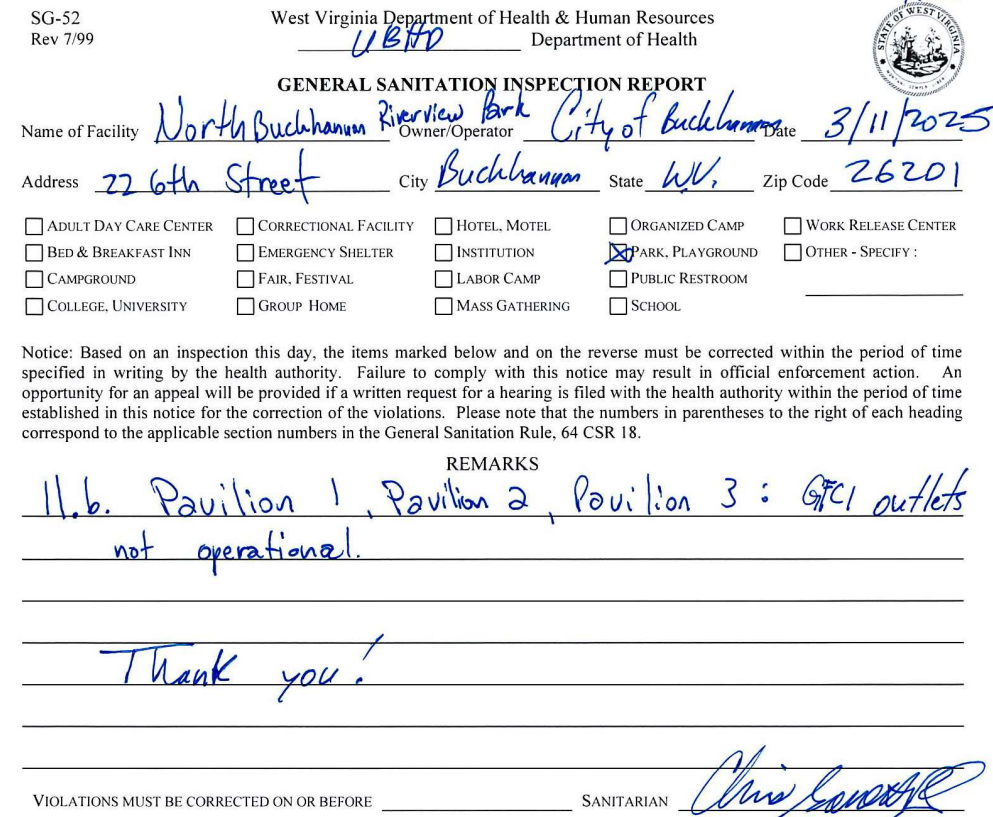 SG-52
Rev 7/99
West Virginia Department of Health & Human Resources
UBHD Department of Health
STATE OF WEST VIRGINIA
GENERAL SANITATION INSPECTION REPORT
Name of Facility North Buckhannon Riverview Park Owner/Operator City of Buckhannon Date 3/11/2025
Address 22 6th Street City Buckhannon State WV. Zip Code 26201
ADULT DAY CARE CENTER CORRECTIONAL FACILITY HOTEL, MOTEL ORGANIZED CAMP WORK RELEASE CENTER
BED & BREAKFAST INN EMERGENCY SHELTER INSTITUTION PARK, PLAYGROUND OTHER - SPECIFY :
CAMPGROUND FAIR, FESTIVAL LABOR CAMP PUBLIC RESTROOM
COLLEGE, UNIVERSITY GROUP HOME MASS GATHERING SCHOOL
Notice: Based on an inspection this day, the items marked below and on the reverse must be corrected within the period of time
specified in writing by the health authority. Failure to comply with this notice may result in official enforcement action. An
opportunity for an appeal will be provided if a written request for a hearing is filed with the health authority within the period of time
established in this notice for the correction of the violations. Please note that the numbers in parentheses to the right of each heading
correspond to the applicable section numbers in the General Sanitation Rule, 64 CSR 18.
REMARKS
11.b. Pavilion 1, Pavilion 2, Pavilion 3 : GFCI outlets
not operational.
Thank you!
VIOLATIONS MUST BE CORRECTED ON OR BEFORE SANITARIAN Chris